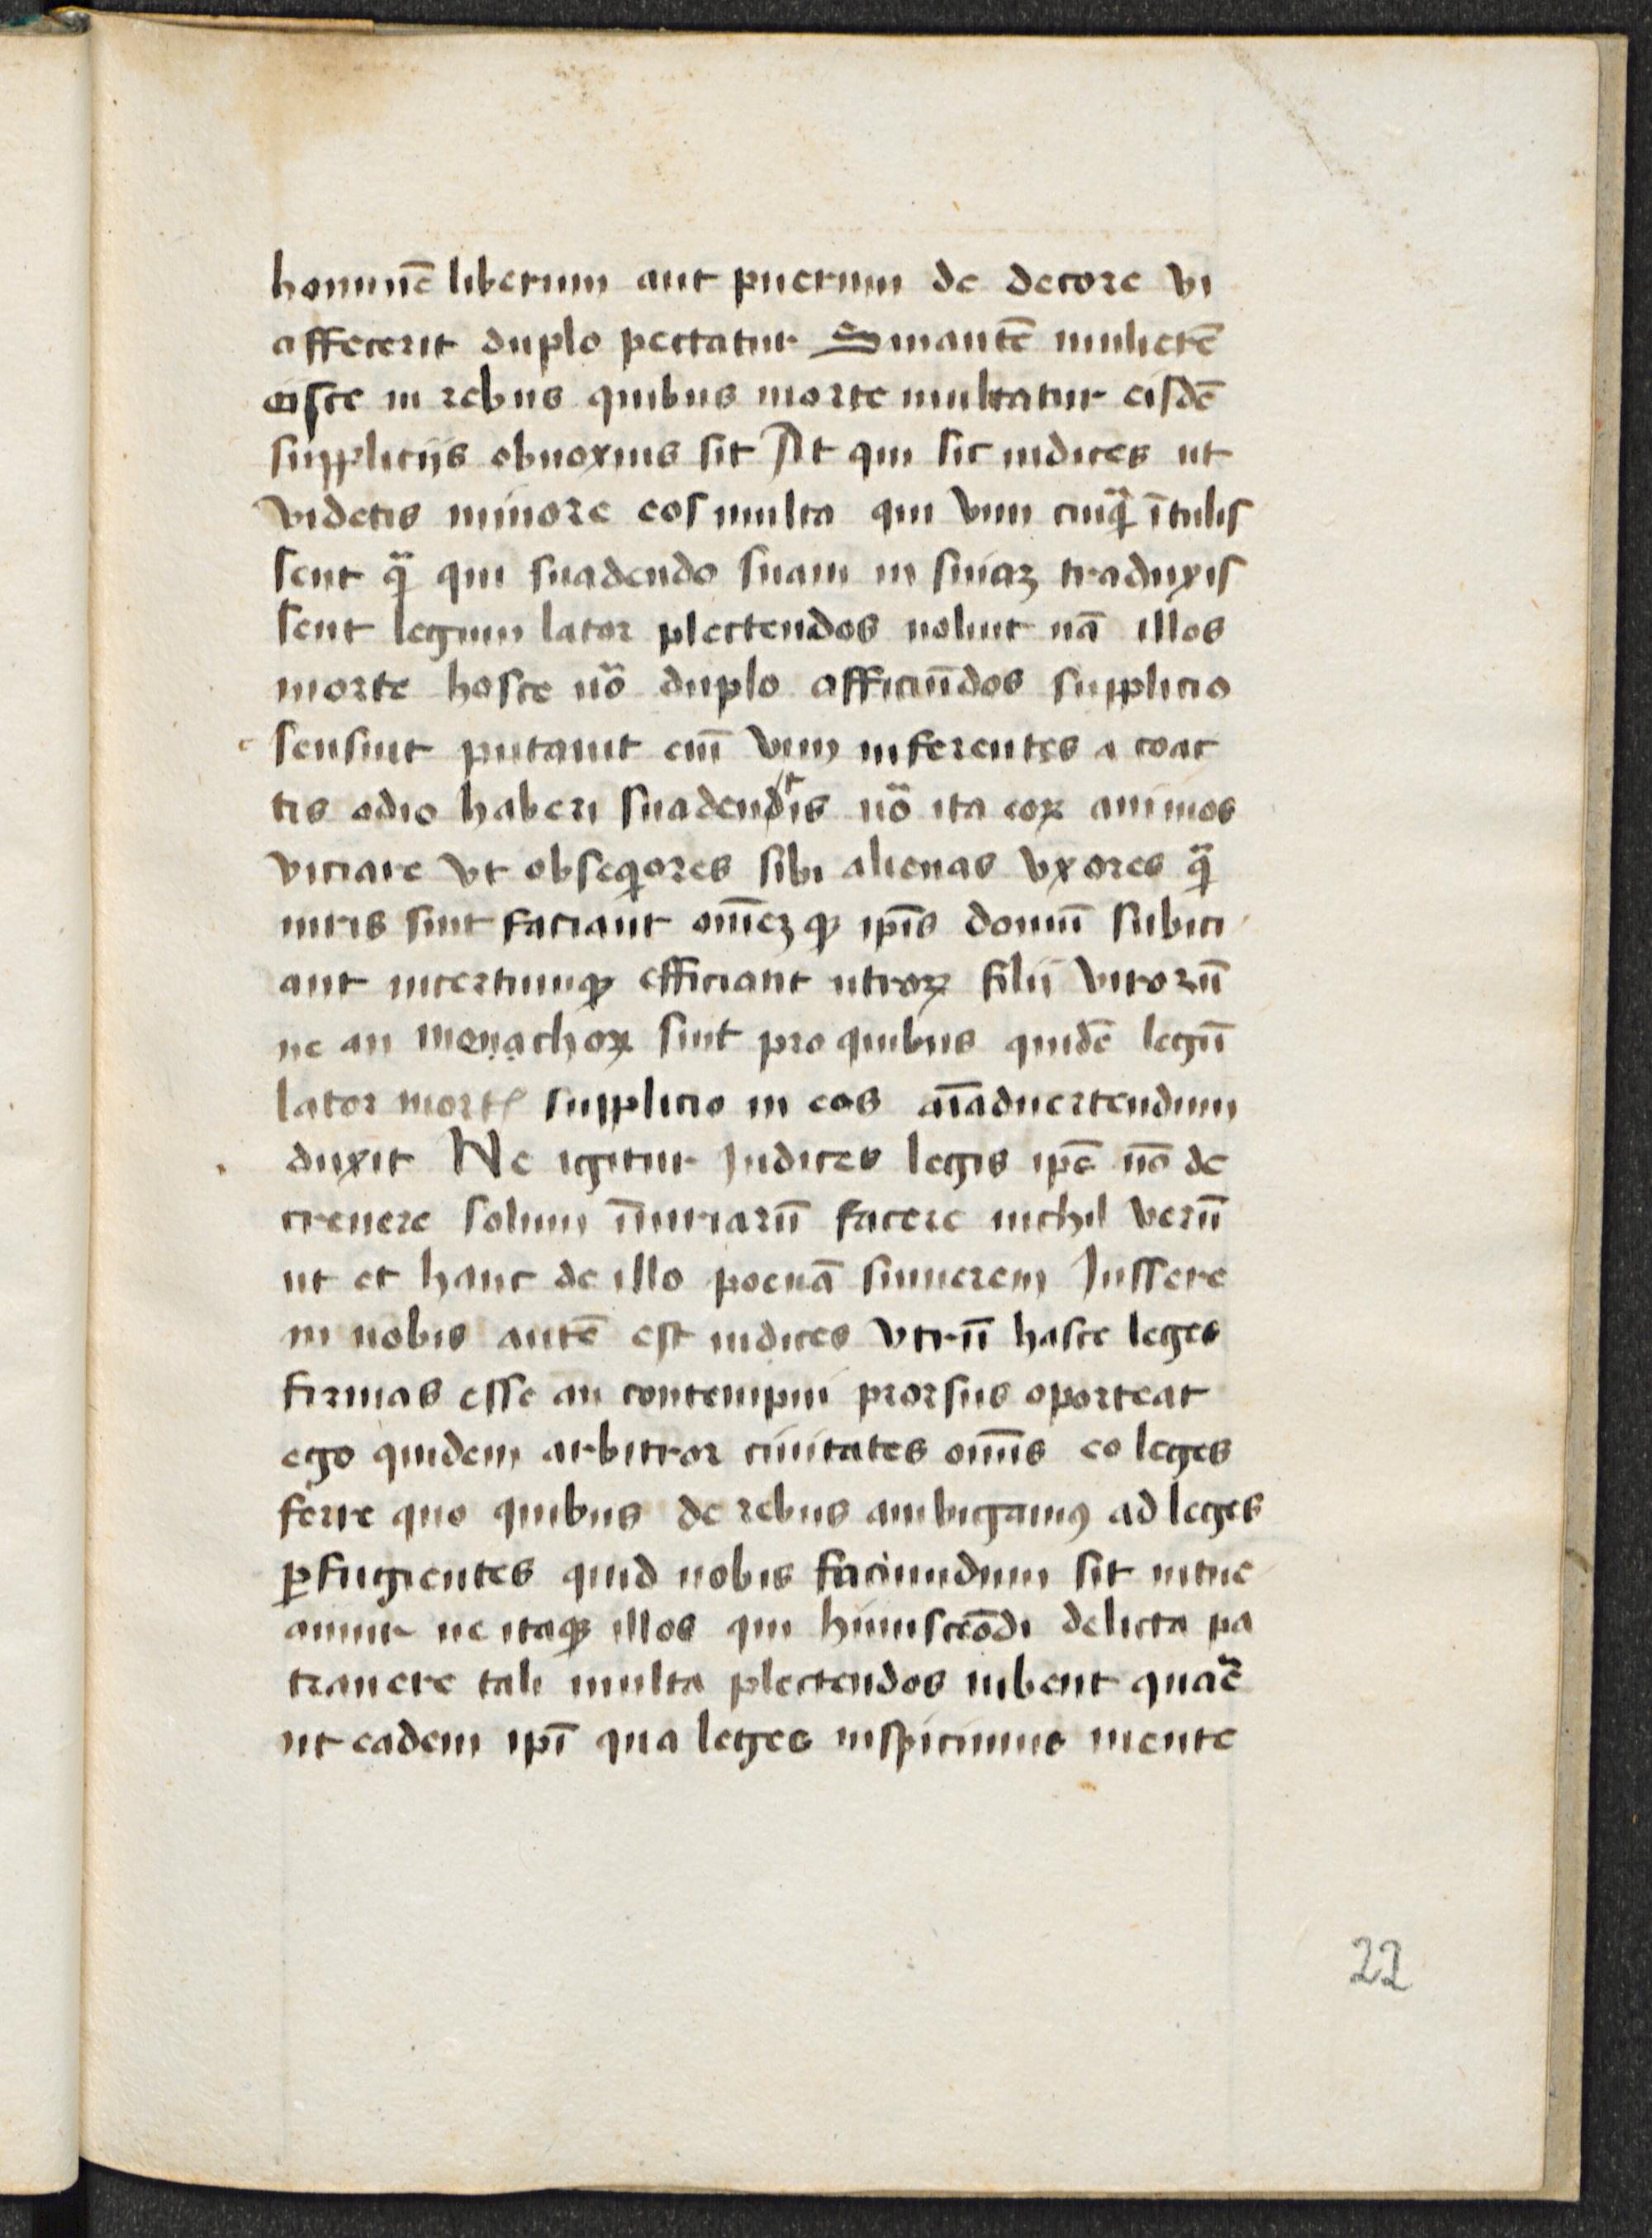 hominē liberum aut puerum de decore vi
affecerit duplo pectatur Sin autē mulierē
eisce in rebus quibus morte multatur eisdē
suppliciis obnoxius sit At qui sic iudices ut
videtis minore eos multa qui vim cuiqꝫ ītulis
sent qͣ qui suadendo suam in sinaꝫ traduxis
sent legum lator plectendos uoluit nā illos
morte hosce uͦo duplo afficiūdos supplicio
sensiut putauit eni vim inferentes a coac
tis odio haberi suadentis uͦo ita eoꝝ animos
viciare vt obseqͥores sibi alienas vxores qͣ
uiris sint faciant omēꝫ qꝫ ipīs domū subici
ant incertumqꝫ efficiant utroꝝ filii virorū
ne an monachoꝝ sint pro quibus quidē legū
lator mortꝭ supplicio in eos aīaduertendum
duxit Ne igitur Iudices legis ipē nō de
creuere solum īiuriarū facere nichil verū
ut et hanc de illo poenā sumerem Iussere
in uobis autē est iudices vtrū hasce leges
firmas esse an contempni prorsus oporteat
ego quidem arbitror ciuitates om̄is eo leges
ferre quo quibus de rebus ambigamꝰ ad leges
ꝑfugientes quid nobis faciundum sit intue
amur ne itaqꝫ illos qui huiuscēodi delicta pa
trauere tali multa plectendos iubent quaē
ut eadem ipī qua leges inspicimus mente
22